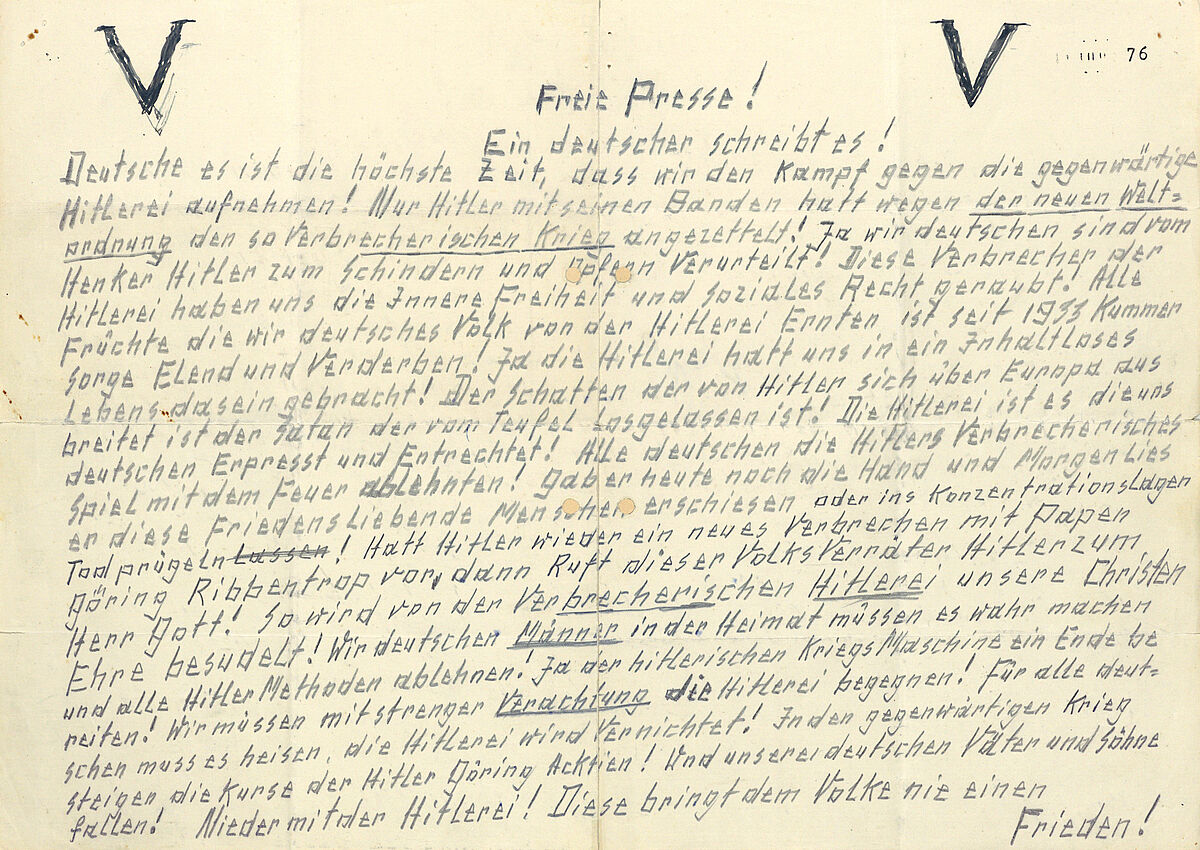 V V 76
Freie Presse!
Ein deutscher schreibt es!
Deutsche es ist die höchste Zeit, dass wir den Kampf gegen die gegenwärtige
Hitlerei aufnehmen! Nur Hitler mit seinen Banden hatt wegen der neuen Welt=
ordnung den so Verbrecherischen Krieg angezettelt! Ja wir deutschen sind vom
Henker Hitler zum Schindern und Opfern Verurteilt! Diese Verbrecher der
Hitlerei haben uns die Innere Freiheit und soziales Recht geraubt! Alle
Früchte die wir deutsches Volk von der Hitlerei Ernten ist seit 1933 Kummer
Sorge Elend und Verderben! Ja die Hitlerei hatt uns in ein Inhaltloses
Lebens dasein gebracht! Der Schatten der von Hitler sich über Europa aus
breitet ist der Satan der vom Teufel Losgelassen ist! Die Hitlerei ist es die uns
deutschen Erpresst und Entrechtet! Alle deutschen die Hitlers Verbrecherisches
Spiel mit dem Feuer ablehnten! Gab er heute noch die Hand und Morgen Lies
er diese Friedens Liebende Menschen erschiesen oder ins Konzentrationslagen
Tod prügeln Lassen! Hatt Hitler wieder ein neues Verbrechen mit Papen
Göring Ribbentrop vor, dann Ruft dieser Volks Verräter Hitler zum
Herr Gott! So wird von der Verbrecherischen Hitlerei unsere Christen
Ehre besudelt! Wir deutschen Männer in der Heimat müssen es wahr machen
und alle Hitler Methoden ablehnen! Ja der hitlerischen Kriegs Maschine ein Ende be
reiten! Wir müssen mit strenger Verachtung die Hitlerei begegnen! Für alle deut=
schen muss es heisen, die Hitlerei wird Vernichtet! In den gegenwärtigen Krieg
steigen die Kurse der Hitler Göring Acktien! Und unsere deutschen Väter und Söhne
fallen! Nieder mit der Hitlerei! Diese bringt dem Volke nie einen
Frieden!